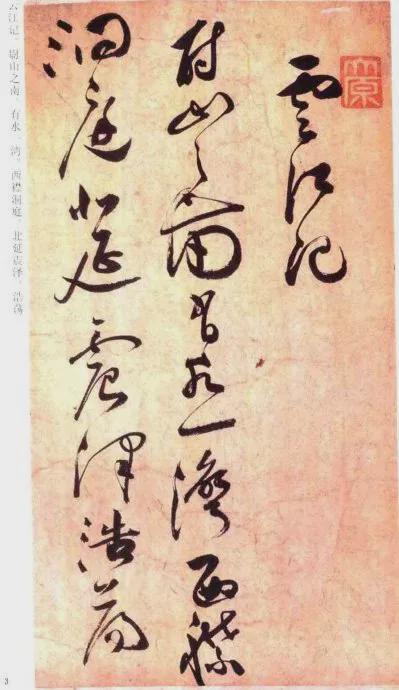 雲江記
尉山之南有水一灣西襟
洞庭北延震澤浩蕩
云江记。尉山之南，有水一湾。西襟洞庭，北延震泽，浩荡
3